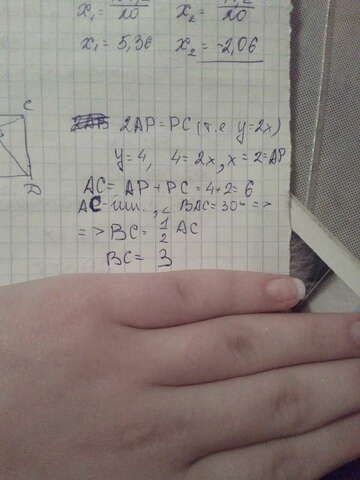 x₁ = 20 x₂ = 20
x₁ = 5,36 x₂ = -2,06
C
D
2AP = PC (т.е y=2x)
y=4, 4=2x, x=2=AP
AC = AP + PC = 4+2=6
AC-гип., ∠BAC=30° =>
=> BC = 1/2 AC
BC = 3